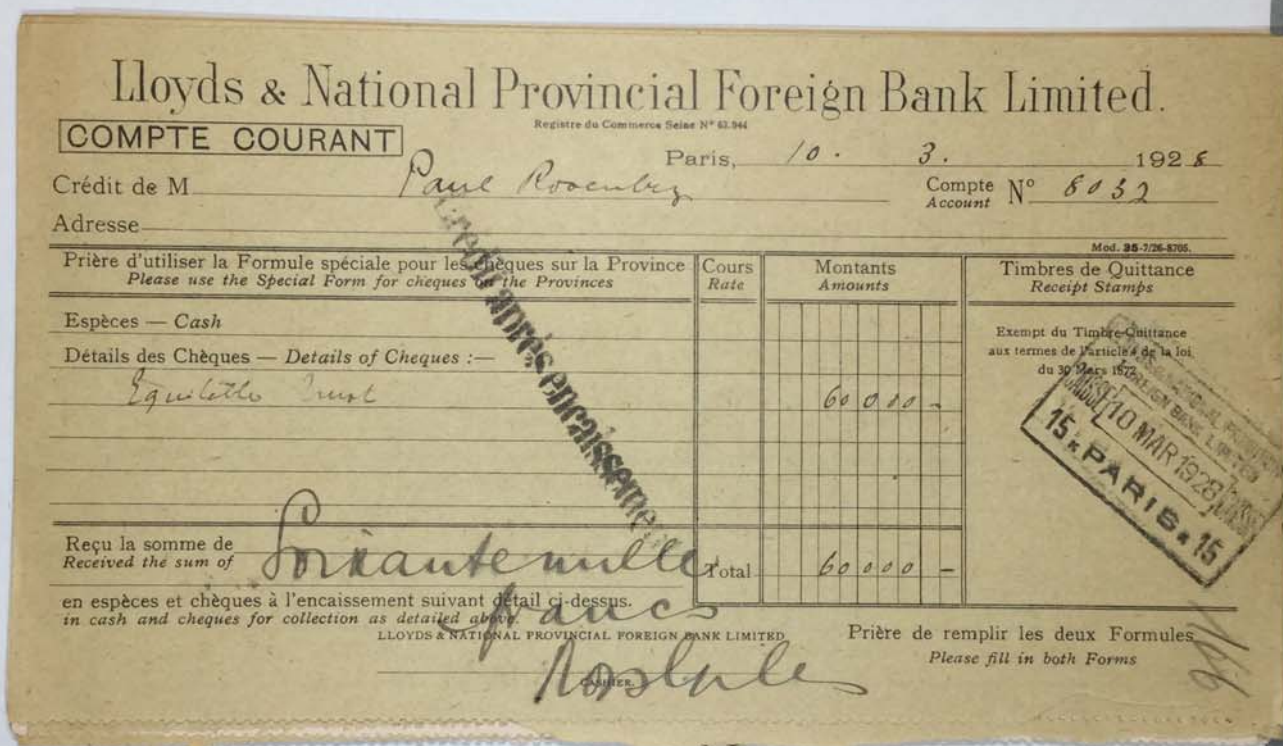 Lloyds & National Provincial Foreign Bank Limited.
Registre du Commerce Seine Nº 63.944
COMPTE COURANT
Paris, 10. 3. 1928
Crédit de M Paul Rosenberg
Compte Nº 8032
Account
Adresse
Mod. 35-7/26-8705.
Prière d'utiliser la Formule spéciale pour les chèques sur la Province
Please use the Special Form for cheques on the Provinces
Cours
Rate
Montants
Amounts
Timbres de Quittance
Receipt Stamps
Espèces — Cash
Détails des Chèques — Details of Cheques :—
Trust
60000-
Exempt du Timbre-Quittance
aux termes de l'article 4 de la loi
du 30 Mars 1872
Crédit après encaissement
FOREIGN BANK LIMITED
CAISSE 10 MAR 1928
15 * PARIS * 15
Reçu la somme de Soixante mille
Received the sum of
francs
Total 60000 -
en espèces et chèques à l'encaissement suivant détail ci-dessus.
in cash and cheques for collection as detailed above.
LLOYDS & NATIONAL PROVINCIAL FOREIGN BANK LIMITED
CASHIER.
Prière de remplir les deux Formules
Please fill in both Forms